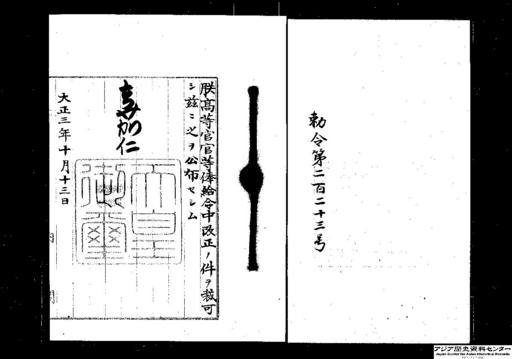 勅令第二百二十三号
朕高等官官等俸給令中改正ノ件ヲ裁可
シ茲ニ之ヲ公布セシム
嘉仁
天皇御璽
大正三年十月十三日
アジア歴史資料センター
Japan Center for Asian Historical Records